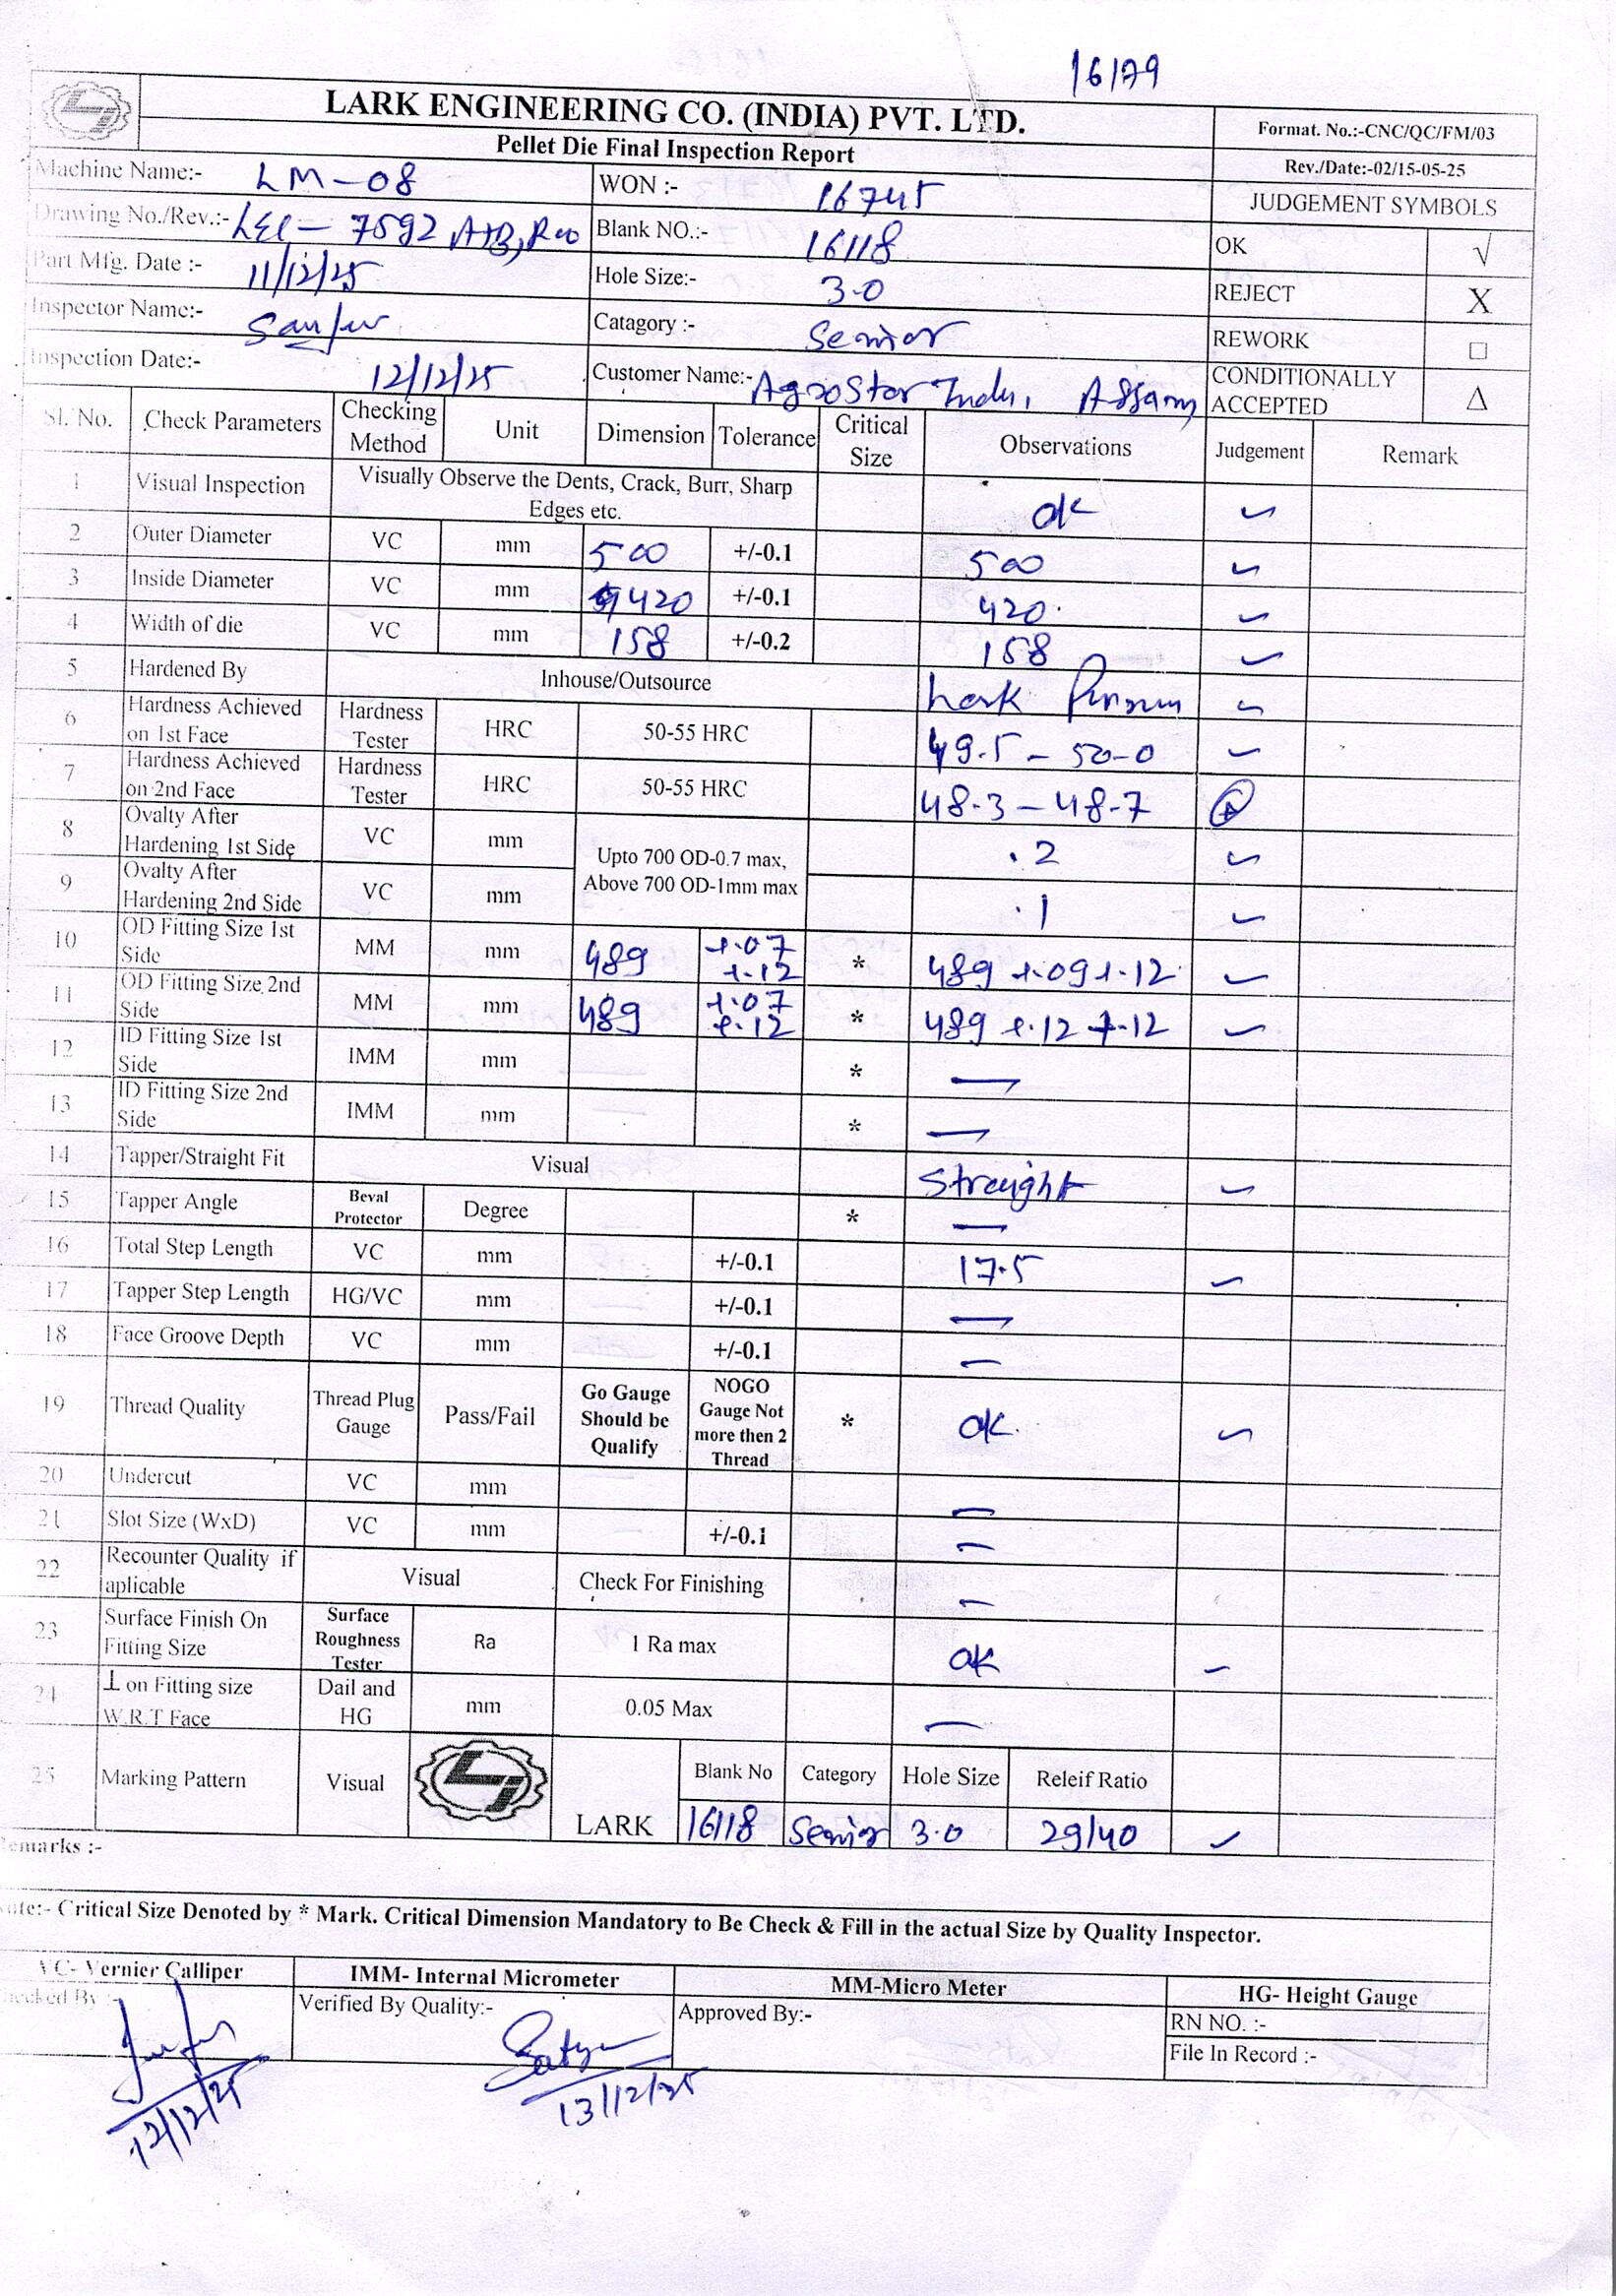 16179
LARK ENGINEERING CO. (INDIA) PVT. LTD.
Pellet Die Final Inspection Report
Format. No.:-CNC/QC/FM/03
Rev./Date:-02/15-05-25
Machine Name:- LM-08 WON :- 16745 JUDGEMENT SYMBOLS
Drawing No./Rev.:- LEI- 7592 A+B, R00 Blank NO.:- 16118 OK √
Part Mfg. Date :- 11/12/25 Hole Size:- 3.0 REJECT X
Inspector Name:- Catagory :- Senior REWORK □
Inspection Date:- 12/12/25 Customer Name:- AgroStar Indu, Assam CONDITIONALLY ACCEPTED Δ
Sl. No. Check Parameters Checking Method Unit Dimension Tolerance Critical Size Observations Judgement Remark
1 Visual Inspection Visually Observe the Dents, Crack, Burr, Sharp Edges etc. ok ✓
2 Outer Diameter VC mm 500 +/-0.1 500 ✓
3 Inside Diameter VC mm 420 +/-0.1 420 ✓
4 Width of die VC mm 158 +/-0.2 158 ✓
5 Hardened By Inhouse/Outsource Lark ✓
6 Hardness Achieved on 1st Face Hardness Tester HRC 50-55 HRC 49.5 - 50.0 ✓
7 Hardness Achieved on 2nd Face Hardness Tester HRC 50-55 HRC 48.3 - 48.7
8 Ovalty After Hardening 1st Side VC mm Upto 700 OD-0.7 max, Above 700 OD-1mm max .2 ✓
9 Ovalty After Hardening 2nd Side VC mm .1 ✓
10 OD Fitting Size 1st Side MM mm 489 +.07 +.12 * 489 +.09 +.12 ✓
11 OD Fitting Size 2nd Side MM mm 489 +.07 +.12 * 489 +.12 +.12 ✓
12 ID Fitting Size 1st Side IMM mm * —
13 ID Fitting Size 2nd Side IMM mm * —
14 Tapper/Straight Fit Visual Straight ✓
15 Tapper Angle Beval Protector Degree * —
16 Total Step Length VC mm +/-0.1 17.5 ✓
17 Tapper Step Length HG/VC mm +/-0.1 —
18 Face Groove Depth VC mm +/-0.1 —
19 Thread Quality Thread Plug Gauge Pass/Fail Go Gauge Should be Qualify NOGO Gauge Not more then 2 Thread * ok ✓
20 Undercut VC mm —
21 Slot Size (WxD) VC mm +/-0.1 —
22 Recounter Quality if aplicable Visual Check For Finishing —
23 Surface Finish On Fitting Size Surface Roughness Tester Ra 1 Ra max ok ✓
24 ⊥ on Fitting size W.R.T Face Dail and HG mm 0.05 Max —
25 Marking Pattern Visual LARK Blank No Category Hole Size Releif Ratio
16118 Senior 3.0 29/40 ✓
emarks :-
ote:- Critical Size Denoted by * Mark. Critical Dimension Mandatory to Be Check & Fill in the actual Size by Quality Inspector.
VC- Vernier Calliper IMM- Internal Micrometer MM-Micro Meter HG- Height Gauge
hecked By :- Verified By Quality:- Approved By:- RN NO. :-
File In Record :-
Satya
12/12/25 13/12/25